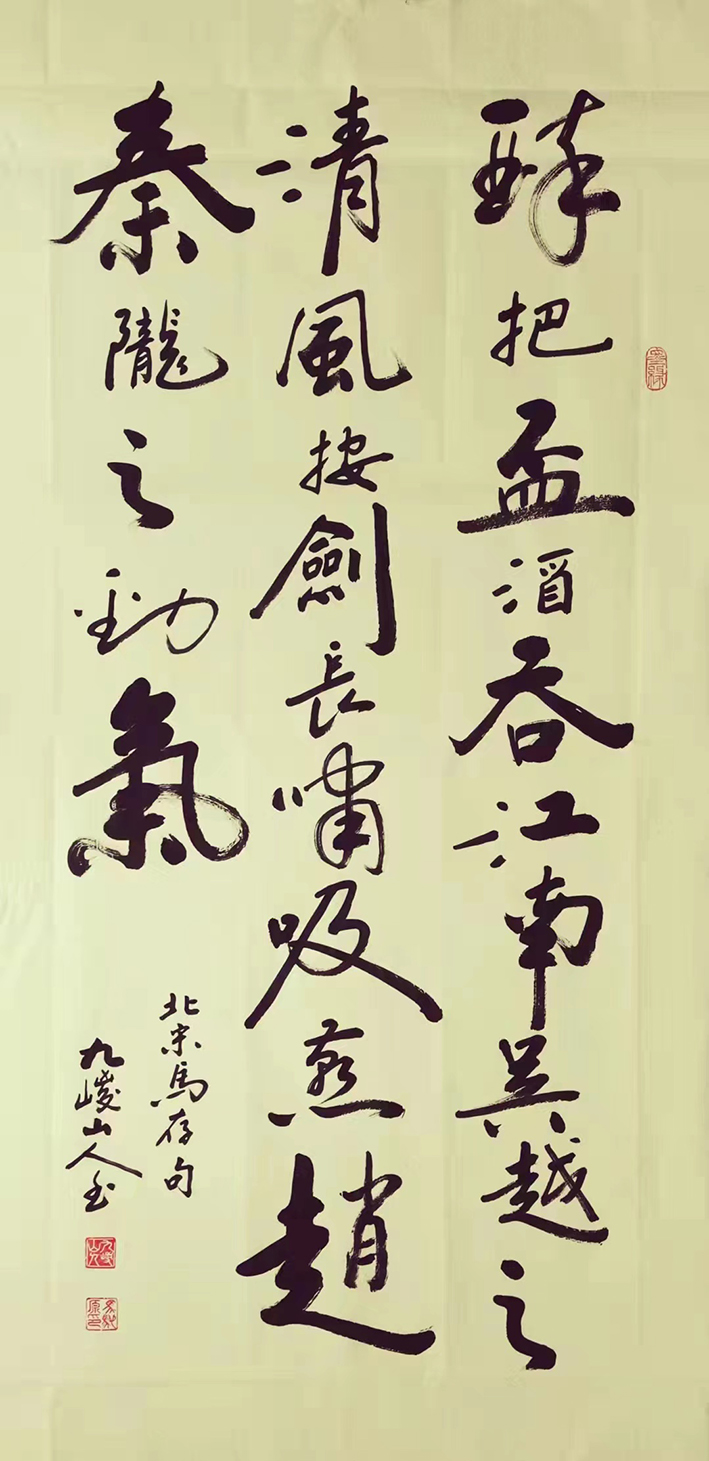 醉把盃酒吞江南吳越之
清風按劍長嘯吸燕趙
秦隴之勁氣
北宋馬存句
九嵕山人书